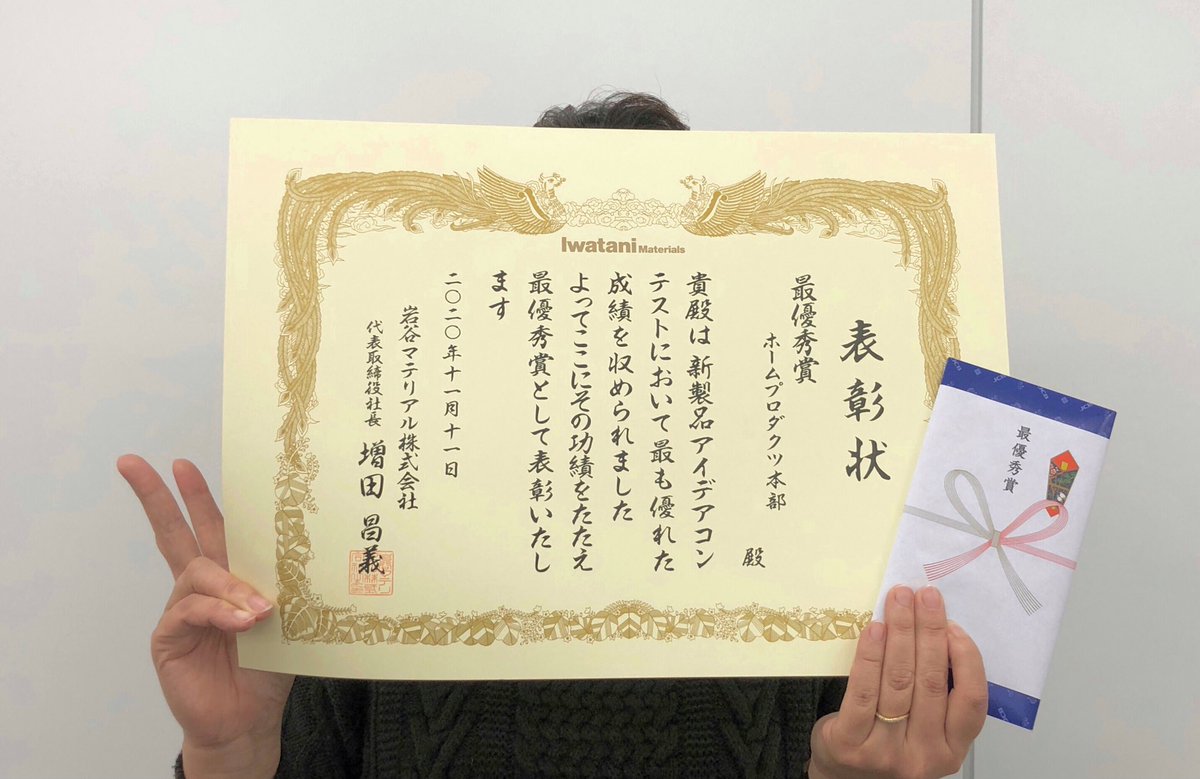 Iwatani Materials
表彰状
最優秀賞
ホームプロダクツ本部
殿
貴殿は新製品アイデアコン
テストにおいて最も優れた
成績を収められました
よってここにその功績をたたえ
最優秀賞として表彰いたし
ます
二〇二〇年十一月十一日
岩谷マテリアル株式会社
代表取締役社長 増田 昌義
最優秀賞
JCB